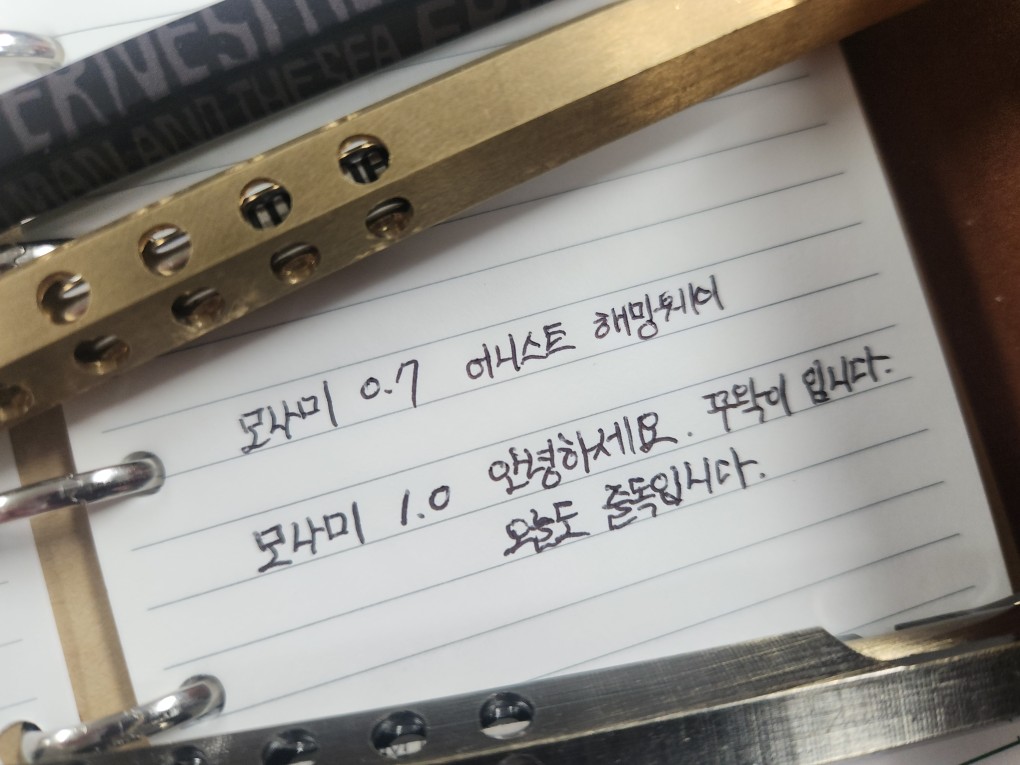 ERNEST
MAN AND THE SEA
모나미 0.7 어니스트 해밍웨이
모나미 1.0 안녕하세요. 꾸막이 입니다.
오늘도 줄독입니다.